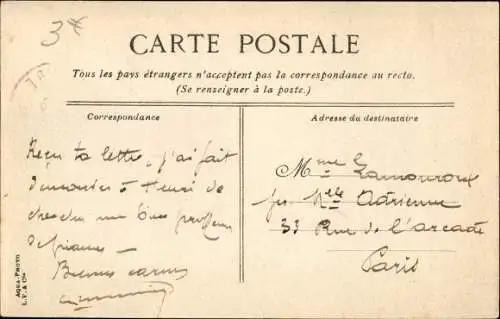 3 fr
CARTE POSTALE
Tous les pays étrangers n'acceptent pas la correspondance au recto.
(Se renseigner à la poste.)
Correspondance
Adresse du destinataire
Reçu ta lettre, j'ai fait
demander à Henri de
chercher un bon
de piano —
Bonnes
Mme
pr Melle Adrienne
33 Rue de l'arcade
Paris
AQUA-PHOTO
L.V. & Cie